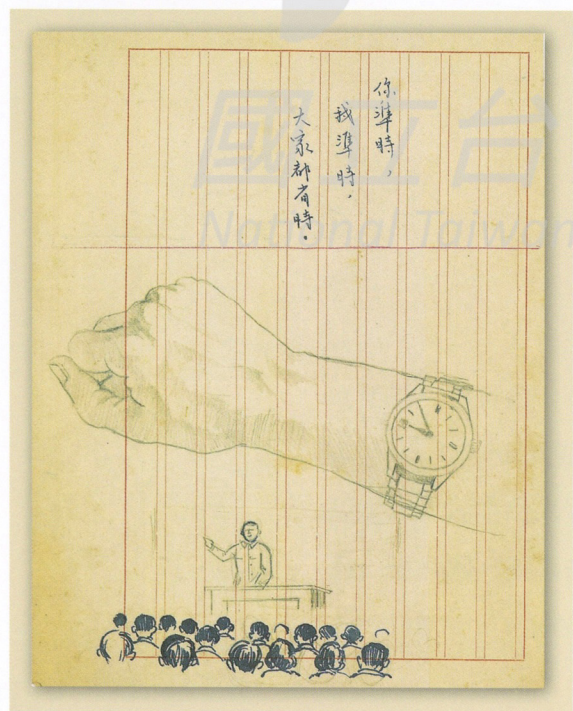 你準時，
我準時，
大家都省時。
國立台
National Taiwan